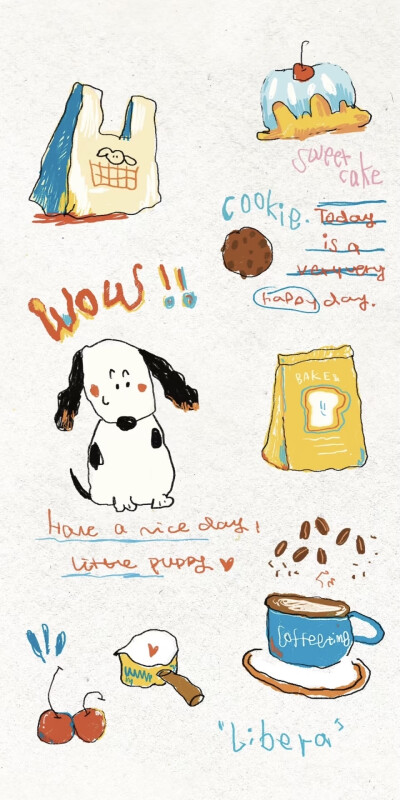 sweet
cake
cookie.
Today
is a
very very
happy day.
WOW!!
BAKED
Have a nice day!
little puppy
Coffeeing
"Libera"